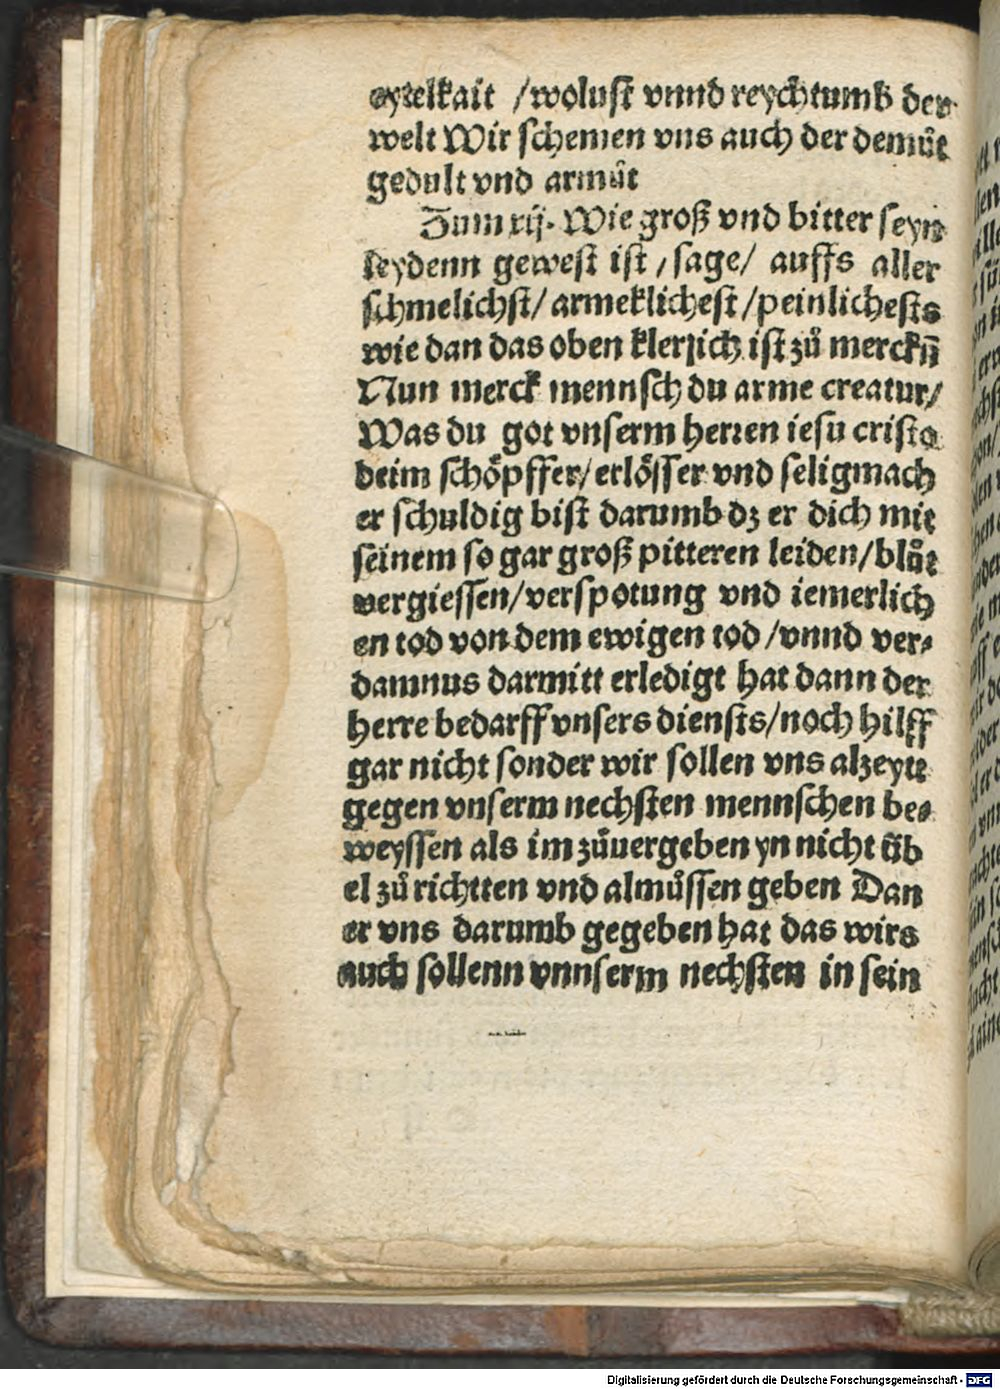 eytelkait /wolust vnnd reychtumb der
welt Wir schemen vns auch der demůt
gedult vnd armůt
Zum xij. Wie groß vnd bitter seyn
leydenn gewest ist / sage/ auffs aller
schmelichst/ armeklichest/peinlichests
wie dan das oben klerlich ist zů merckn̄
Nun merck mennsch du arme creatur/
Was du got vnserm herren iesu cristo
deim schöpffer/erlösser vnd seligmach
er schuldig bist darumb dz er dich mit
seinem so gar groß pitteren leiden/blůt
vergiessen/verspotung vnd iemerlich
en tod von dem ewigen tod /vnnd ver⸗
damnus darmitt erledigt hat dann der
herre bedarff vnsers diensts/noch hilff
gar nicht sonder wir sollen vns alzeytt
gegen vnserm nechsten mennschen be⸗
weyssen als im zůuergeben yn nicht üb
el zů richtten vnd almůssen geben Dan
er vns darumb gegeben hat das wirs
auch sollenn vnnserm nechsten in sein
Digitalisierung gefördert durch die Deutsche Forschungsgemeinschaft - DFG